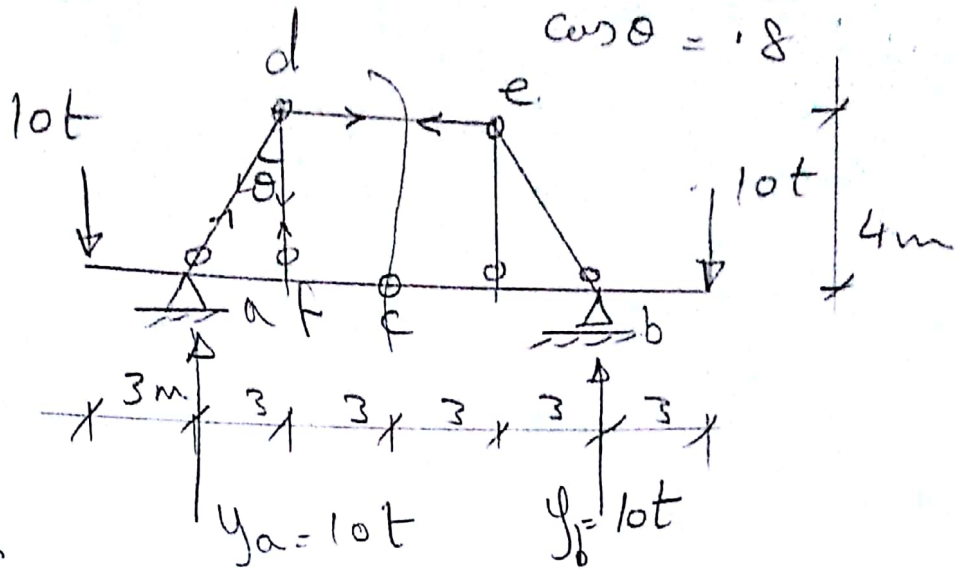 cos θ = .8
d
e
10t
θ
10t
4m
a
f
c
b
3m
3
3
3
3
3
ya = 10t
yb = 10t